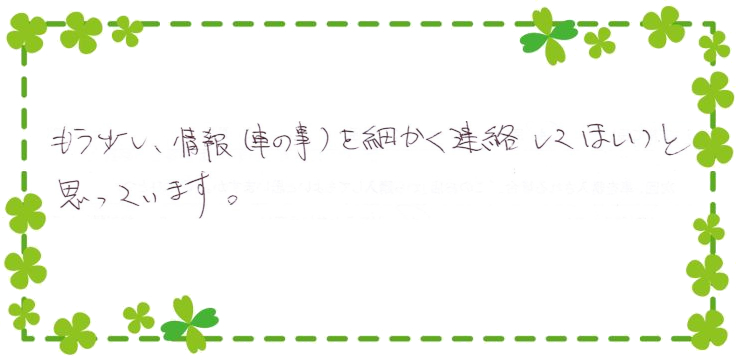 もう少し、情報(車の事)を細かく連絡してほしいと
思っています。